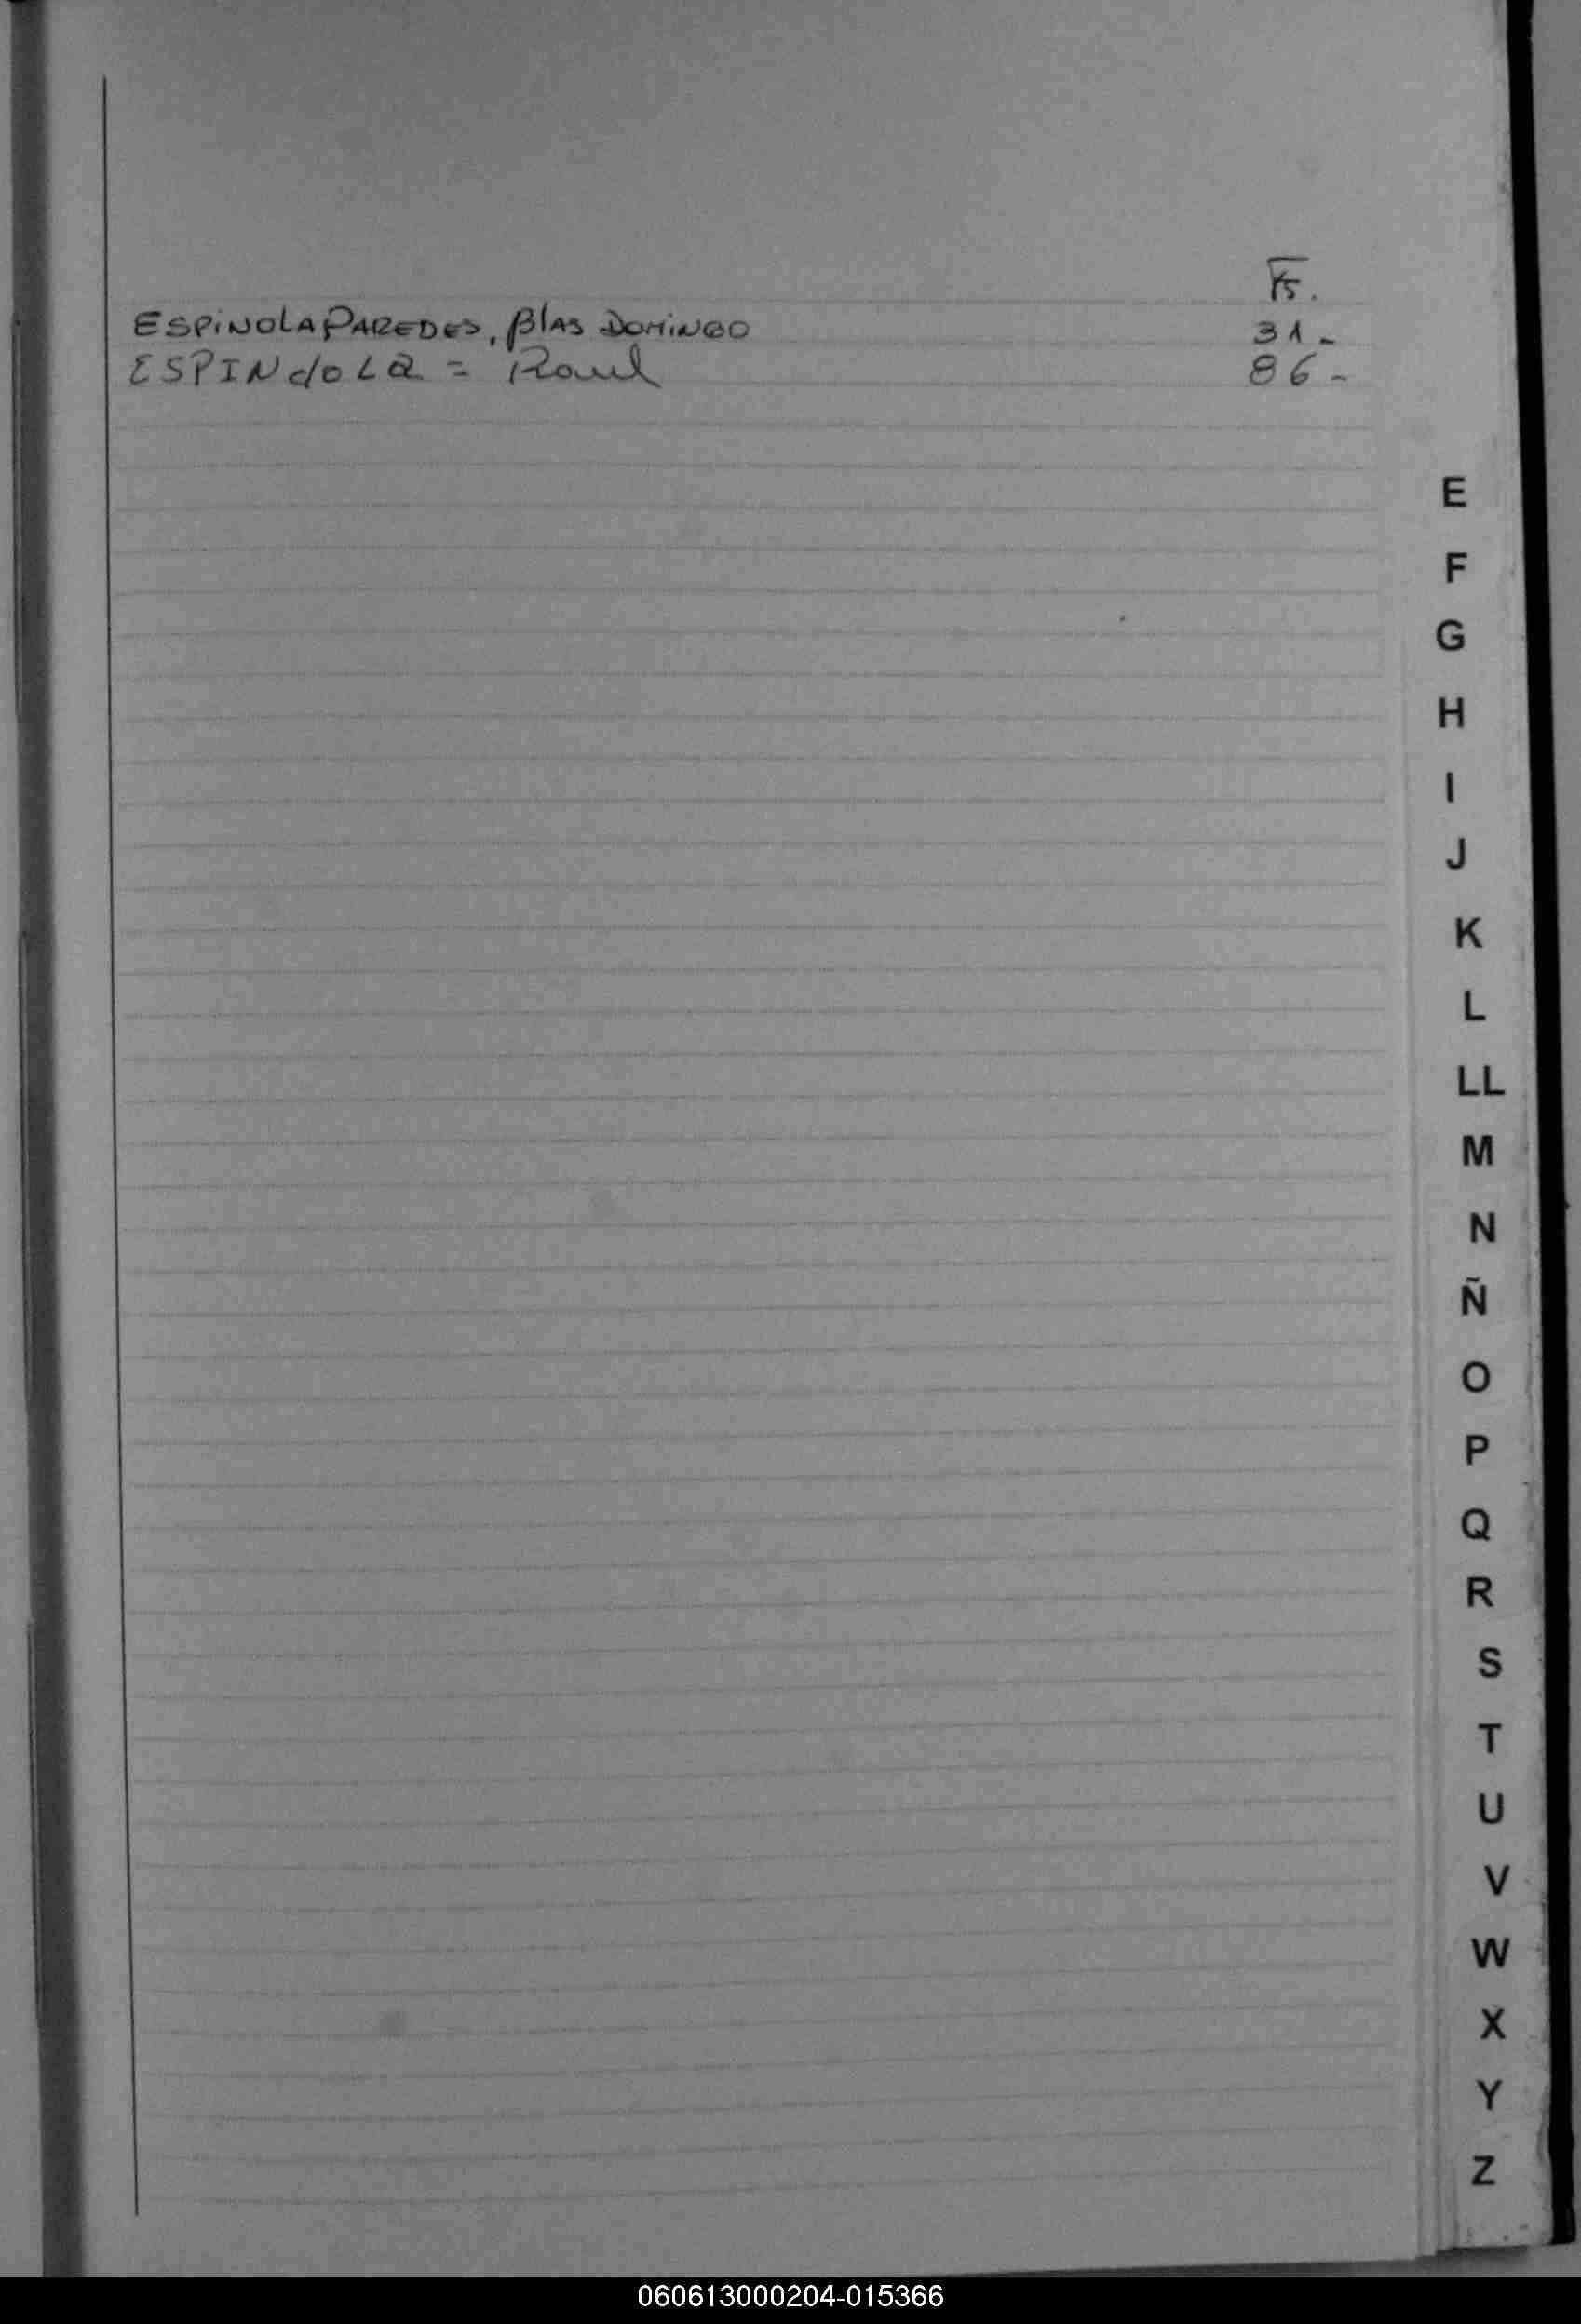 Fs.
ESPINOLA PAREDES, Blas DOMINGO 31-
ESPINdoLa = Raul 86-
E
F
G
H
I
J
K
L
LL
M
N
Ñ
O
P
Q
R
S
T
U
V
W
X
Y
Z
060613000204-015366